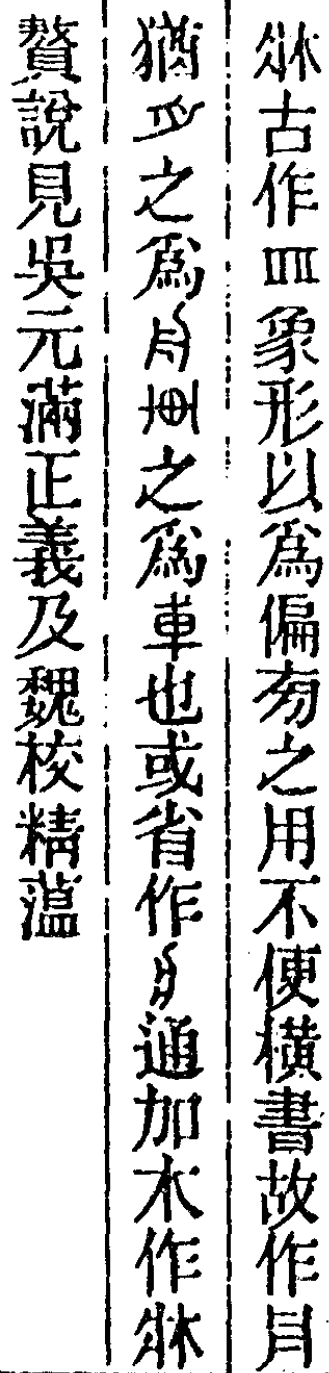 牀古作𠁁象形以爲偏㫄之用不便橫書故作爿
猶之爲之爲車也或省作通加木作牀
贅說見吳元滿正義及魏校精薀